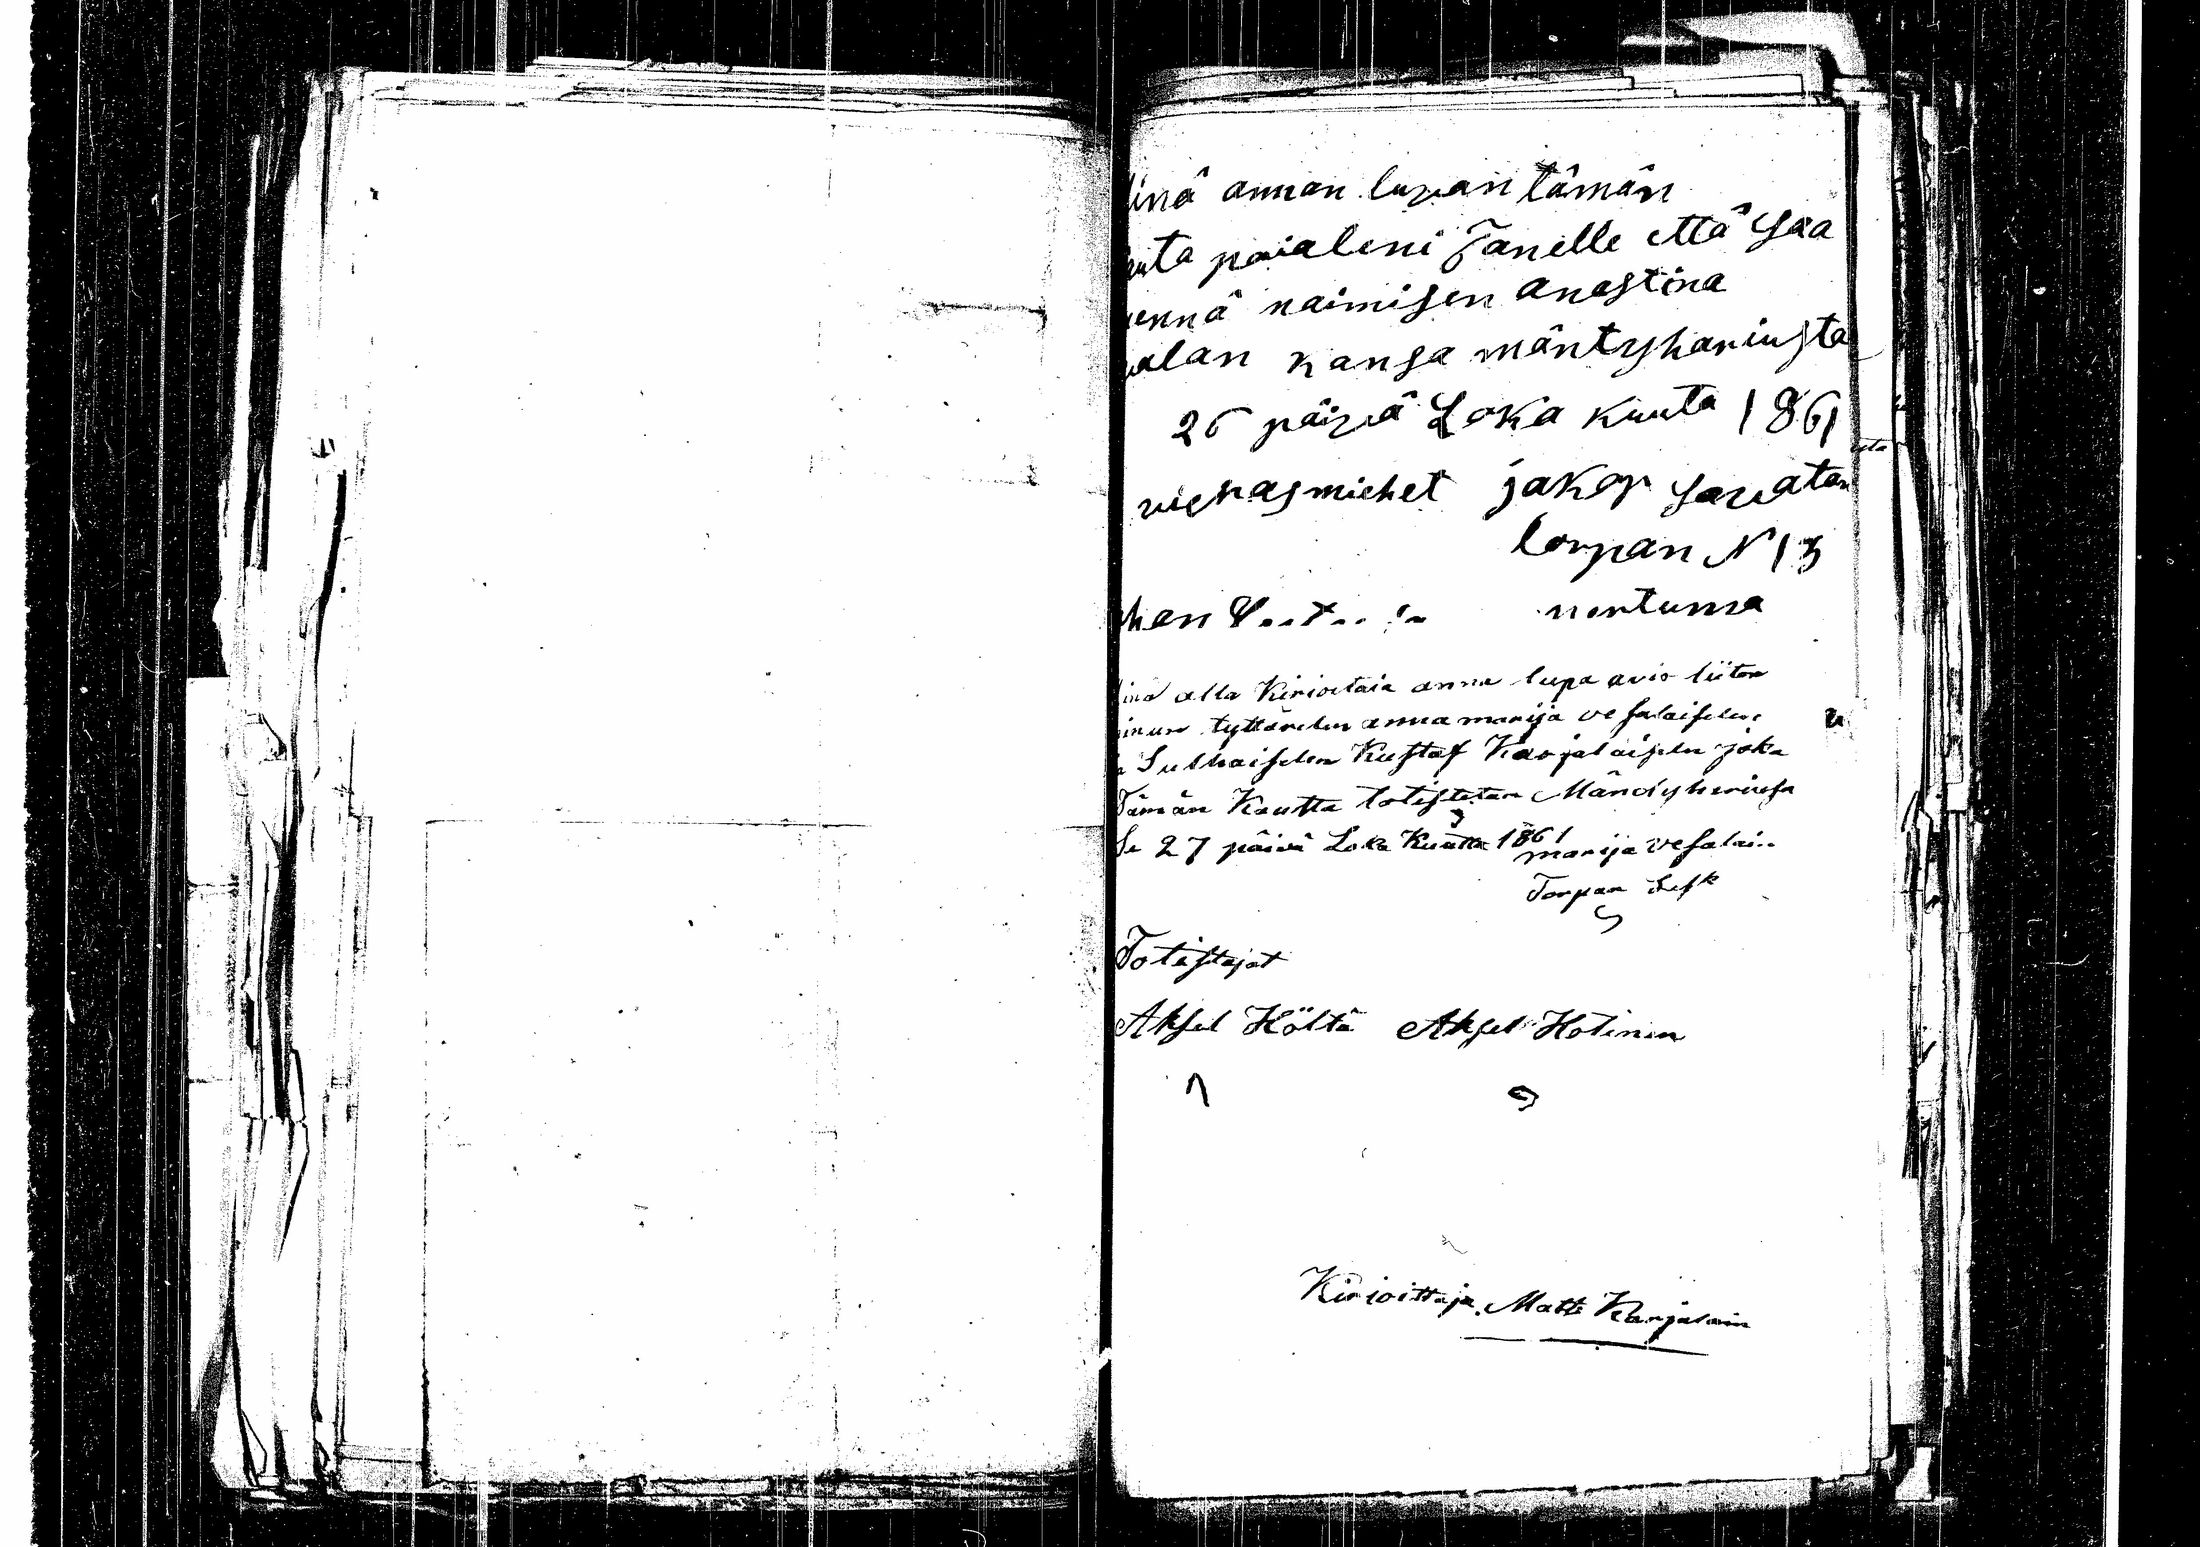 inä annan luvan tämän
uta poialeni Janelle että saa
ennä naimisen anastina
alan kansa mäntyhariusta
26 päivä Loka kuuta 1861
vierasmiehet jakop savatan
lorpan N 13
han
ina alla Kirioitaia anna lupa avio liiton
inun tyttärelen anna marija vesalaiselen
Sulhaiselen Kustaf Karjalaiselen joka
Tämän Kautta totistetan Mändyhariusa
Se 27 päivä Loka Kuutta 1861
marija vesalain
Torpan Lesk
Totistajat
Aksel Höltä Aksel Hotinen
Kirioittaja Matti Karjalain